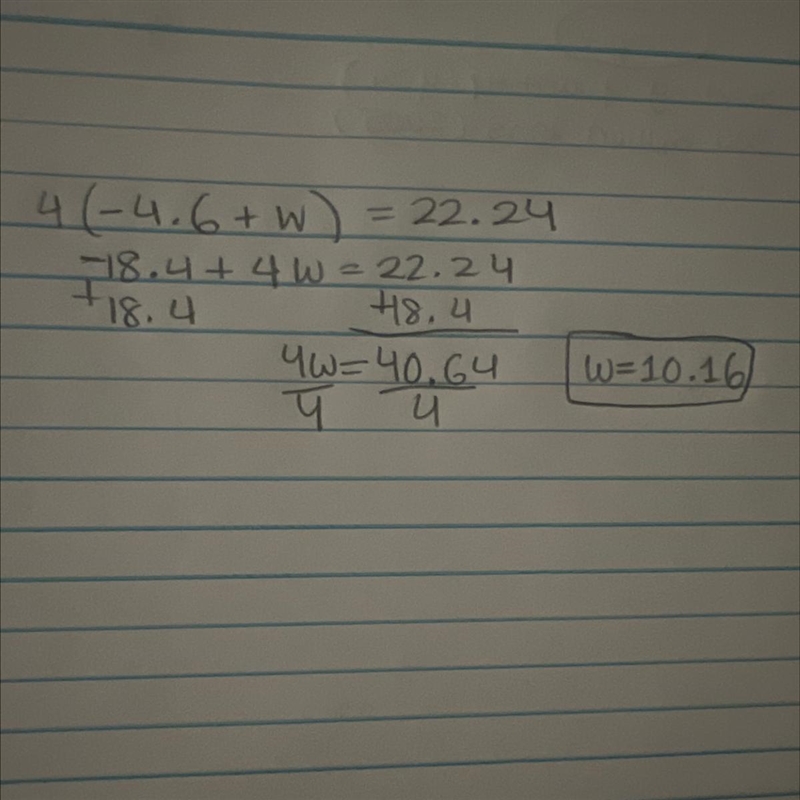 4(-4.6+w) = 22.24
-18.4+4w=22.24
+18.4 +18.4
4w=40.64 w=10.16
4 4